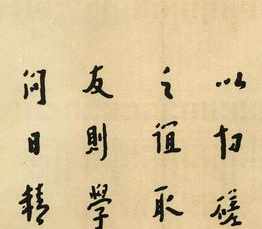 以切磋
之誼取
友則學
問日精